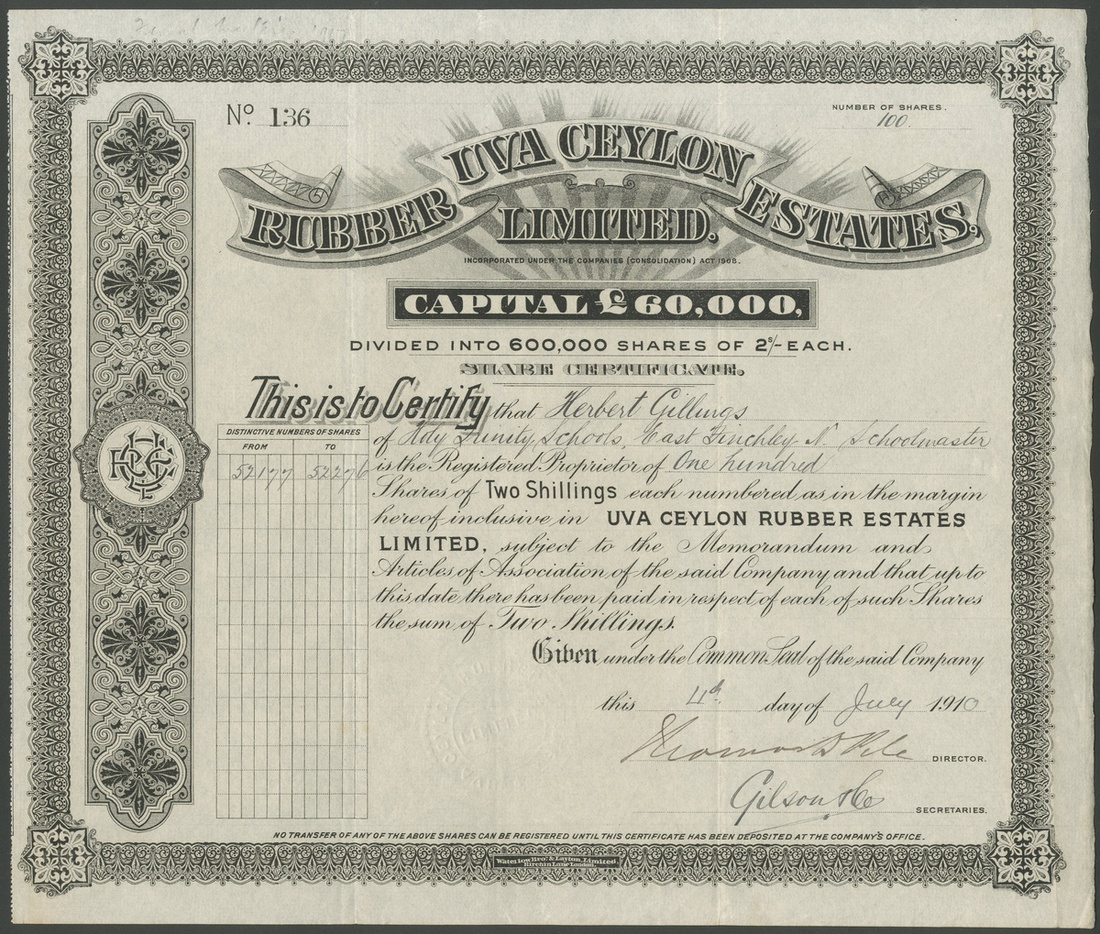 No. 136
NUMBER OF SHARES.
100.
UVA CEYLON
RUBBER ESTATES.
LIMITED.
INCORPORATED UNDER THE COMPANIES (CONSOLIDATION) ACT 1908.
CAPITAL £60,000,
DIVIDED INTO 600,000 SHARES OF 2s/- EACH.
SHARE CERTIFICATE.
This is to Certify that Herbert Gillings
of Holy Trinity Schools, East Finchley N. Schoolmaster
is the Registered Proprietor of One hundred
Shares of Two Shillings each numbered as in the margin
hereof inclusive in UVA CEYLON RUBBER ESTATES
LIMITED, subject to the Memorandum and
Articles of Association of the said Company and that up to
this date there has been paid in respect of each of such Shares
the sum of Two Shillings.
DISTINCTIVE NUMBERS OF SHARES
FROM TO
52177 52276
Given under the Common Seal of the said Company
this 4th day of July 1910
DIRECTOR.
Gilson & Co
SECRETARIES.
NO TRANSFER OF ANY OF THE ABOVE SHARES CAN BE REGISTERED UNTIL THIS CERTIFICATE HAS BEEN DEPOSITED AT THE COMPANY'S OFFICE.
Waterlow Bros. & Layton, Limited.
Birchin Lane London